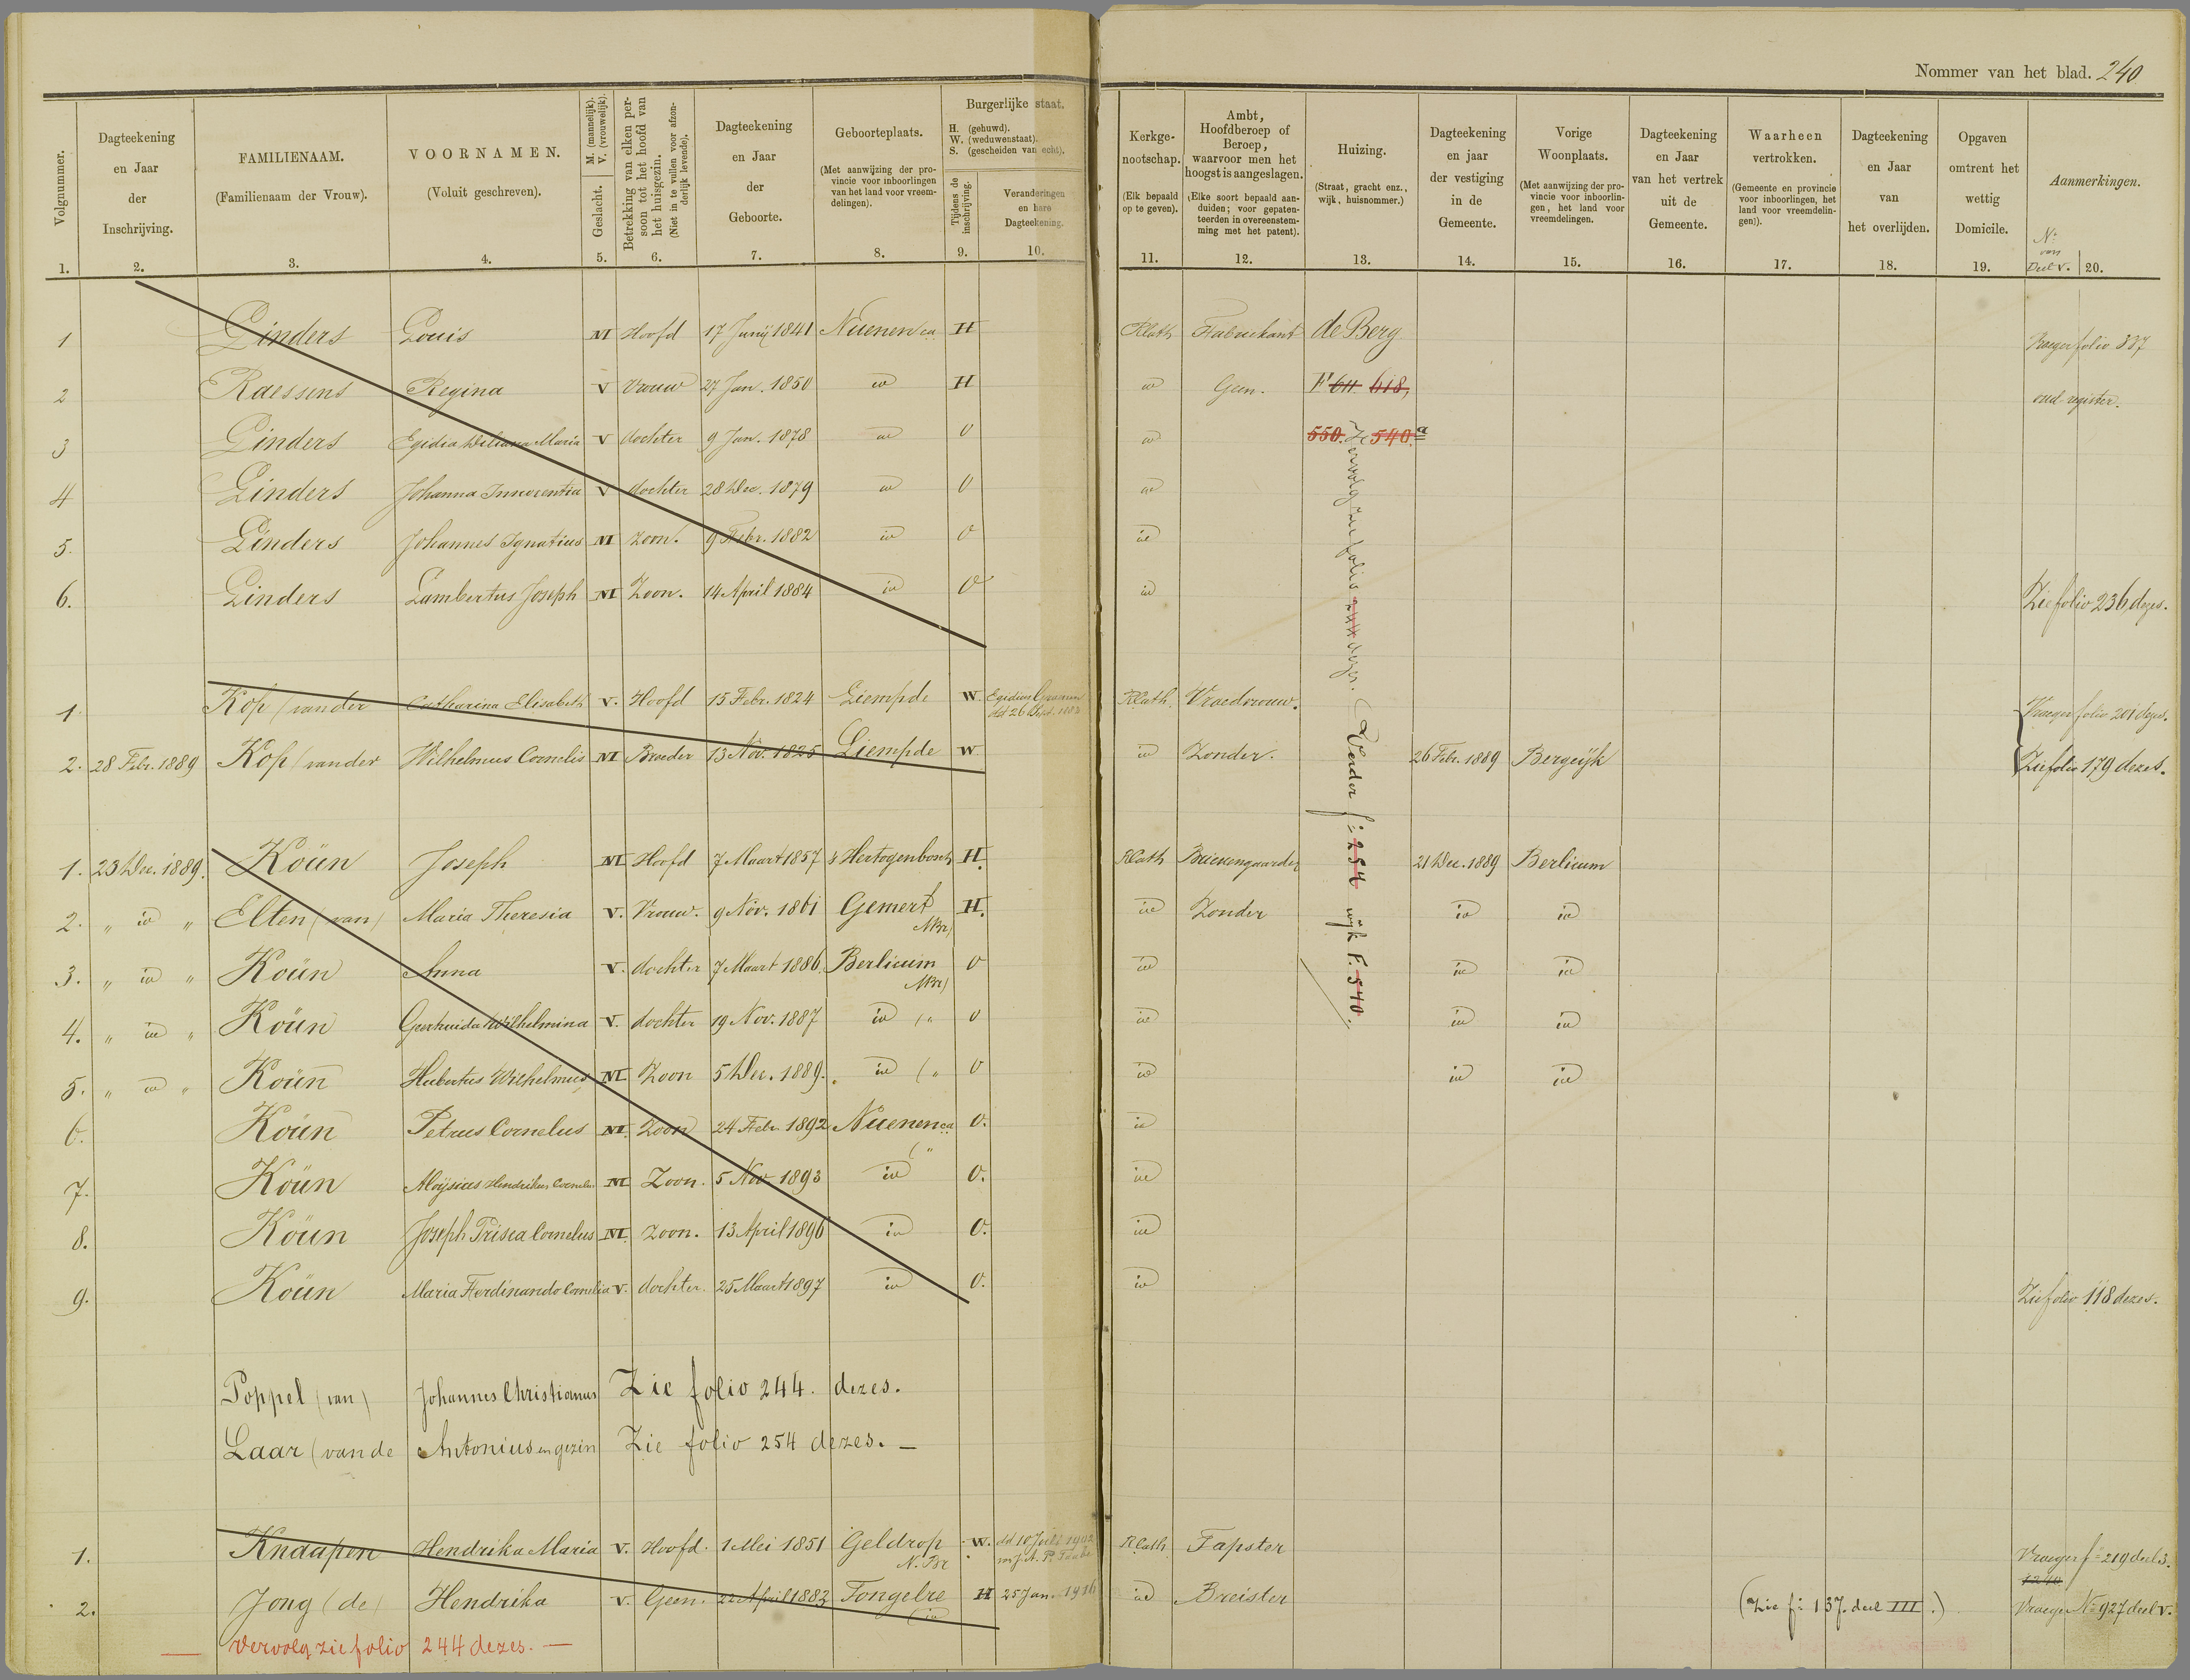 Nommer van het blad. 240
Volgnummer. 1.
Dagteekening en Jaar der Inschrijving. 2.
FAMILIENAAM. (Familienaam der Vrouw). 3.
VOORNAMEN. (Voluit geschreven). 4.
Geslacht. M. (mannelijk). V. (vrouwelijk). 5.
Betrekking van elken persoon tot het hoofd van het huisgezin. (Niet in te vullen voor afzonderlijk levende). 6.
Dagteekening en Jaar der Geboorte. 7.
Geboorteplaats. (Met aanwijzing der provincie voor inboorlingen van het land voor vreemdelingen). 8.
Burgerlijke staat. H. (gehuwd). W. (weduwenstaat). S. (gescheiden van echt).
Tijdens de inschrijving. 9.
Veranderingen en hare Dagteekening. 10.
Kerkgenootschap. (Elk bepaald op te geven). 11.
Ambt, Hoofdberoep of Beroep, waarvoor men het hoogst is aangeslagen. (Elke soort bepaald aanduiden; voor gepatenteerden in overeenstemming met het patent). 12.
Huizing. (Straat, gracht enz., wijk, huisnommer.) 13.
Dagteekening en jaar der vestiging in de Gemeente. 14.
Vorige Woonplaats. (Met aanwijzing der provincie voor inboorlingen, het land voor vreemdelingen. 15.
Dagteekening en Jaar van het vertrek uit de Gemeente. 16.
Waarheen vertrokken. (Gemeente en provincie voor inboorlingen, het land voor vreemdelingen)). 17.
Dagteekening en Jaar van het overlijden. 18.
Opgaven omtrent het wettig Domicile. 19.
Aanmerkingen. No van Deel V. 20.
1 Linders Louis M Hoofd 17 Junij 1841 Nuenen ca H RCath Fabriekant de Berg Vroeger folio 337
2 Raessens Regina V Vrouw 27 Jan. 1850 id H id Geen. F 611 618, oud register.
3 Linders Egidia Maria V dochter 9 Jan. 1878 id O id 550. 540.a
4 Linders Johanna Innocentia V dochter 28 Dec. 1879 id O id
5. Linders Johannes Ignatius M Zoon. 9 Febr. 1882 id O id
6. Linders Lambertus Joseph M Zoon. 14 April 1884 id O id Zie folio 236 dezes.
Vervolg zie folio 244 dezes.
Verder f= 254 wijk F. 540.
1 Kop (van der Catharina Elisabeth V. Hoofd 15 Febr. 1824 Liempde W Egidius RCath. Vroedvrouw. Vroeger folio 201 dezes.
2. 28 Febr. 1889 Kop (van der Wilhelmus Cornelis M Broeder 13 Nov. 1825 Liempde W id Zonder. 26 Febr. 1889 Bergeijk Zie folio 179 dezes.
1. 23 Dec. 1889. Koün Joseph M Hoofd 7 Maart 1857 s Hertogenbosch H. RCath Brievengaarder 21 Dec. 1889 Berlicum
2. " id " Elten (van) Maria Theresia V. Vrouw. 9 Nov. 1861 Gemert NBr) H. id Zonder id id
3. " id " Koün Anna V. dochter 7 Maart 1886 Berlicum NBr) O id id id
4. " id " Koün Geertruida Wilhelmina V. dochter 19 Nov. 1887 id (" O id id id
5. " id " Koün Hubertus Wilhelmus M Zoon 5 Dec. 1889. id (" O id id id
6. Koün Petrus Cornelus M. Zoon 24 Febr. 1892 Nuenen ca O. id
7. Koün Aloÿsius Hendrikus M Zoon. 5 Nov 1893 id O. id
8. Koün Joseph Prisca Cornelus M. Zoon. 13 April 1896 id O. id
9. Koün Maria Ferdinando Cornelia V. dochter. 25 Maart 1897 id O. id Zie folio 118 dezes.
Poppel (van) Johannes Christianus Zie folio 244. dezes.
Laar (van de Antonius en gezin Zie folio 254 dezes. —
1. Knaapen Hendrika Maria V. Hoofd. 1 Mei 1851 Geldrop N. Br W. RCath Tapster Vroeger f= 219 deel 3.
2. Jong (de) Hendrika V. Geen. 22 April 1883 Tongelre (id H 25 Jan. 1916 id Breister (Zie f= 137. deel III.) Vroeger No 927 deel V.
— Vervolg zie folio 244 dezes. —